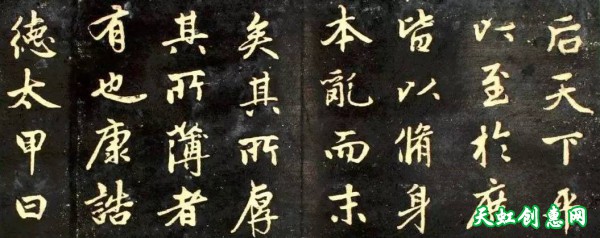 后天下平
以至於庶
皆以脩身
本亂而末
矣其所厚
其所薄者
有也康誥
德太甲曰
天虹创惠网